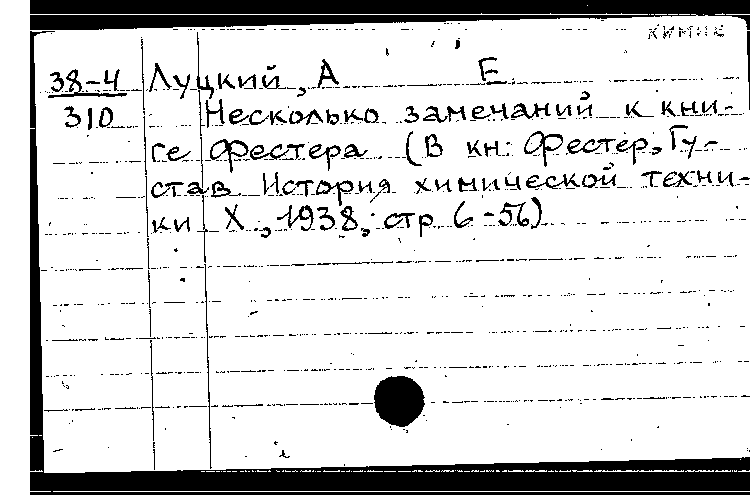 ХИМИЕ
38-4 Луцкий, А Е.
310 Несколько замечаний к кни-
ге Фестера (В кн: Фестер, Гу-
став История химической техни-
ки Х., 1938, стр 6-56)